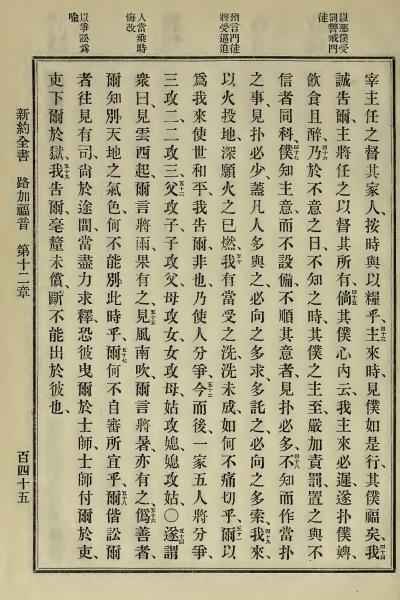 以惡僕受
罰警戒門
徒
預言門徒
將受逼迫
人當乘時
悔改
以爭訟爲
喩
宰主任之督其家人、按時與以糧乎、四十三主來時見僕如是行、其僕福矣、四十四我
誠告爾、主將任之以督其所有、四十五倘其僕心內云、我主來必遲、遂扑僕婢、
飲食且醉、四十六乃於不意之日、不知之時、其僕之主至、嚴加責罰、置之與不
信者同科、四十七僕知主意、而不設備、不順其意者、見扑必多、四十八不知而作當扑
之事、見扑必少、蓋凡人多與之、必向之多求、多託之、必向之多索、四十九我來
以火投地、深願火之已燃、五十我有當受之洗、洗未成、如何不痛切乎、五十一爾以
爲我來使世和平、我告爾非也、乃使人分爭、五十二今而後一家五人將分爭、
三攻二、二攻三、五十三父攻子、子攻父、母攻女、女攻母、姑攻媳、媳攻姑、〇五十四遂謂
衆曰、見雲西起、爾言將雨、果有之、五十五見風南吹、爾言將暑、亦有之、五十六僞善者、
爾知別天地之氣色、何不能別此時乎、五十七爾何不自審所宜乎、五十八爾偕訟爾
者往見有司、尙於途間、當盡力求釋、恐彼曳爾於士師、士師付爾於吏、
吏下爾於獄、五十九我告爾、毫釐未償、斷不能出於彼也、
新約全書 路加福音 第十二章 百四十五